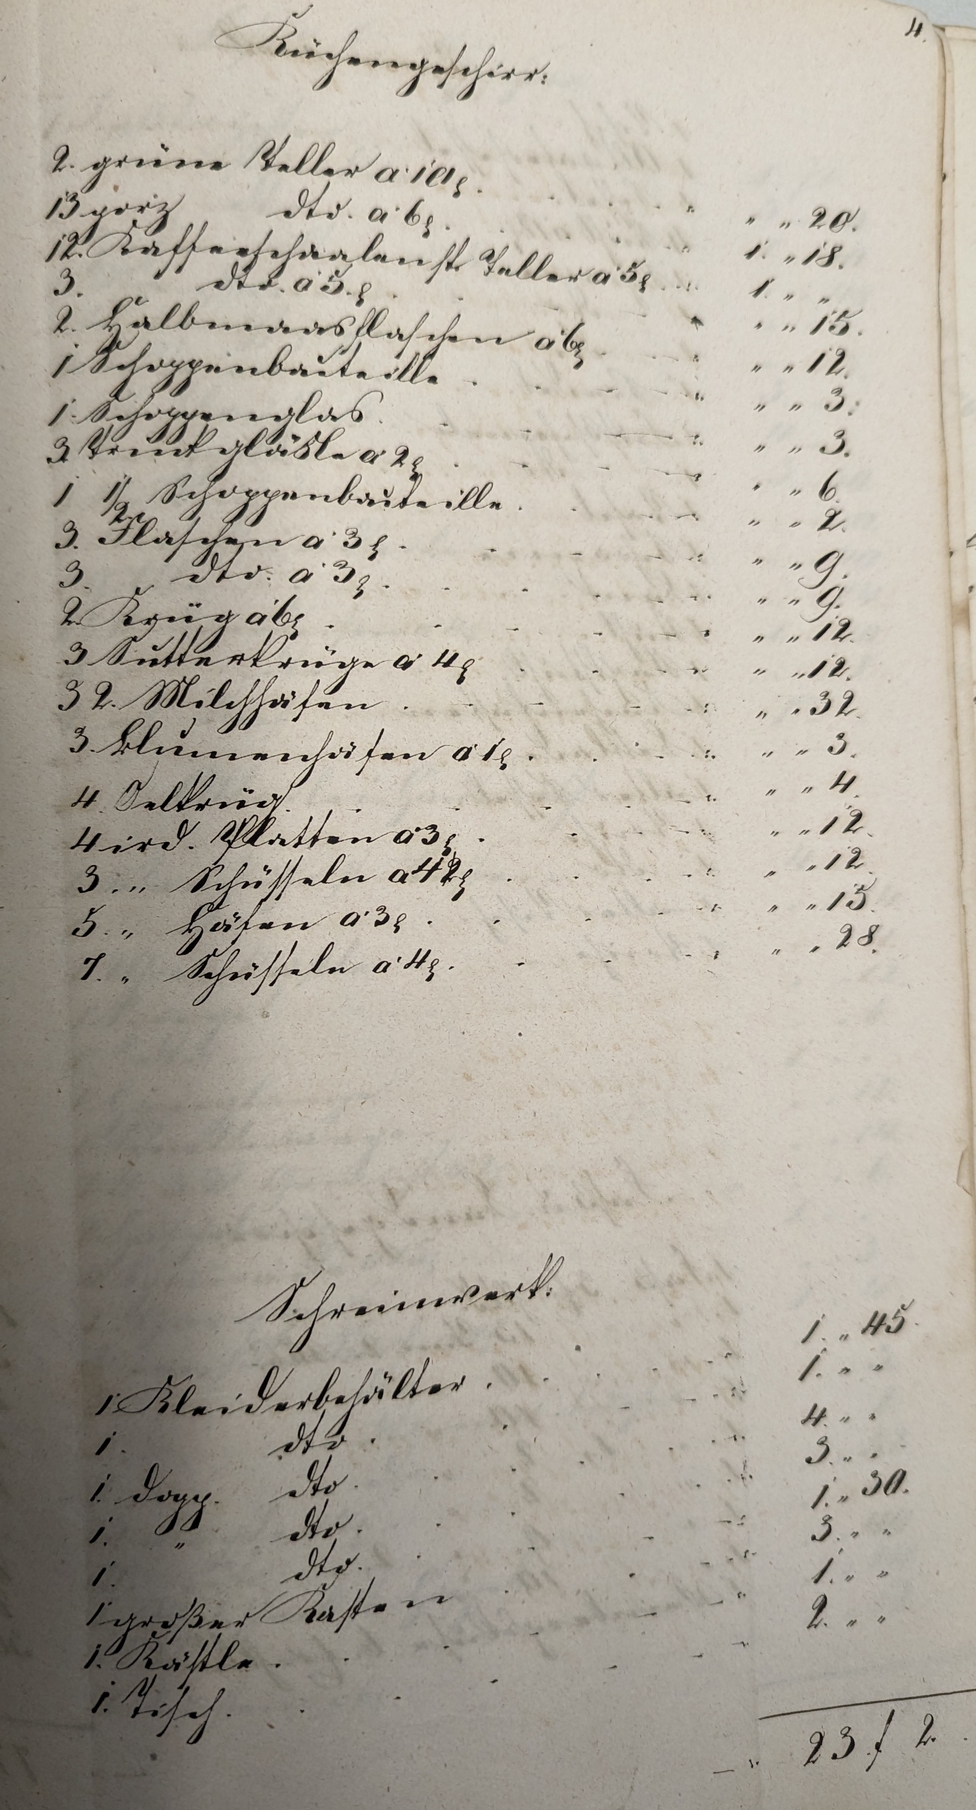 4.
Küchengeschirr:
2. grüne Teller a 10 x. " " 20.
13 porz dto. a 6 x. 1. " 18.
12. Kaffeeschaalen Teller a 5 x 1. " "
3. dto. a 5. x " " 15.
2. Halbmaasflaschen a 6 x " " 12.
1 Schoppenbouteille " " 3.
1. Schoppenglas " " 3.
3 Trinkgläsle a 2 x " " 6.
1 1/2 Schoppenbouteille. " " 2.
3. Flaschen a 3 x. " " 9.
3. " dto. a 3 x. " " 9.
2. Krüg a 6 x " " 12.
3 Sutterkrüge a 4 x " " 12.
32. Milchhäfen " " 32.
3. Blumenhäfen a 1 x. " " 3.
4. Oelkrüg. " " 4.
4 ird. Platten a 3 x. " " 12.
3. " Schüsseln a 4 x " " 12.
5. " Häfen a 3 x. " " 15.
7. " Schüsseln a 4 x. " " 28.
Schreinwerk:
1 Kleiderbehälter. 1. " 45.
1. dto. 1. " "
1. dopp. dto. 4. " "
1. " dto. 3. " "
1. dto. 1. " 30.
1 großer Kasten 3. " "
1. Kästle. 1. " "
1. Tisch. 2. " "
23 f 2.